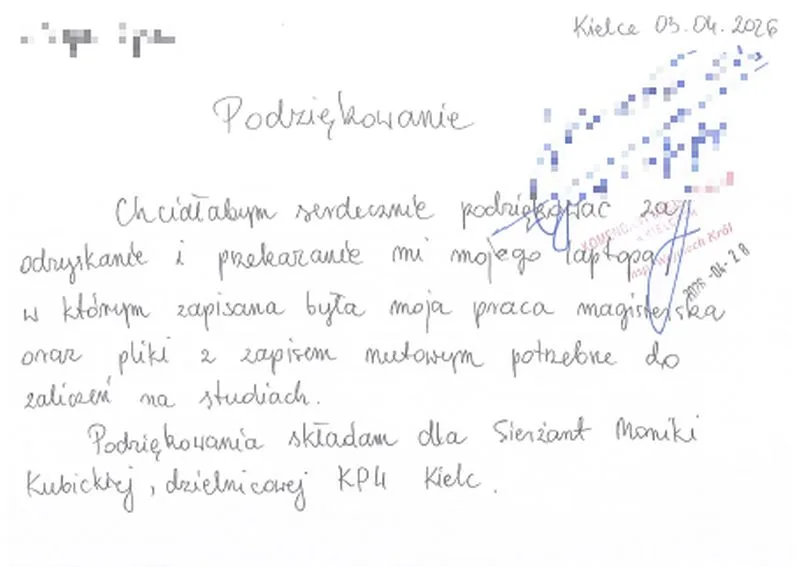 Kielce 03.04.2026
Podziękowanie
Chciałabym serdecznie podziękować za
odzyskanie i przekazanie mi mojego laptopa
w którym zapisana była moja praca magisterska
oraz pliki z zapisem nutowym potrzebne do
zaliczeń na studiach.
Podziękowania składam dla Sierżant Moniki
Kubickiej, dzielnicowej KP4 Kielc.